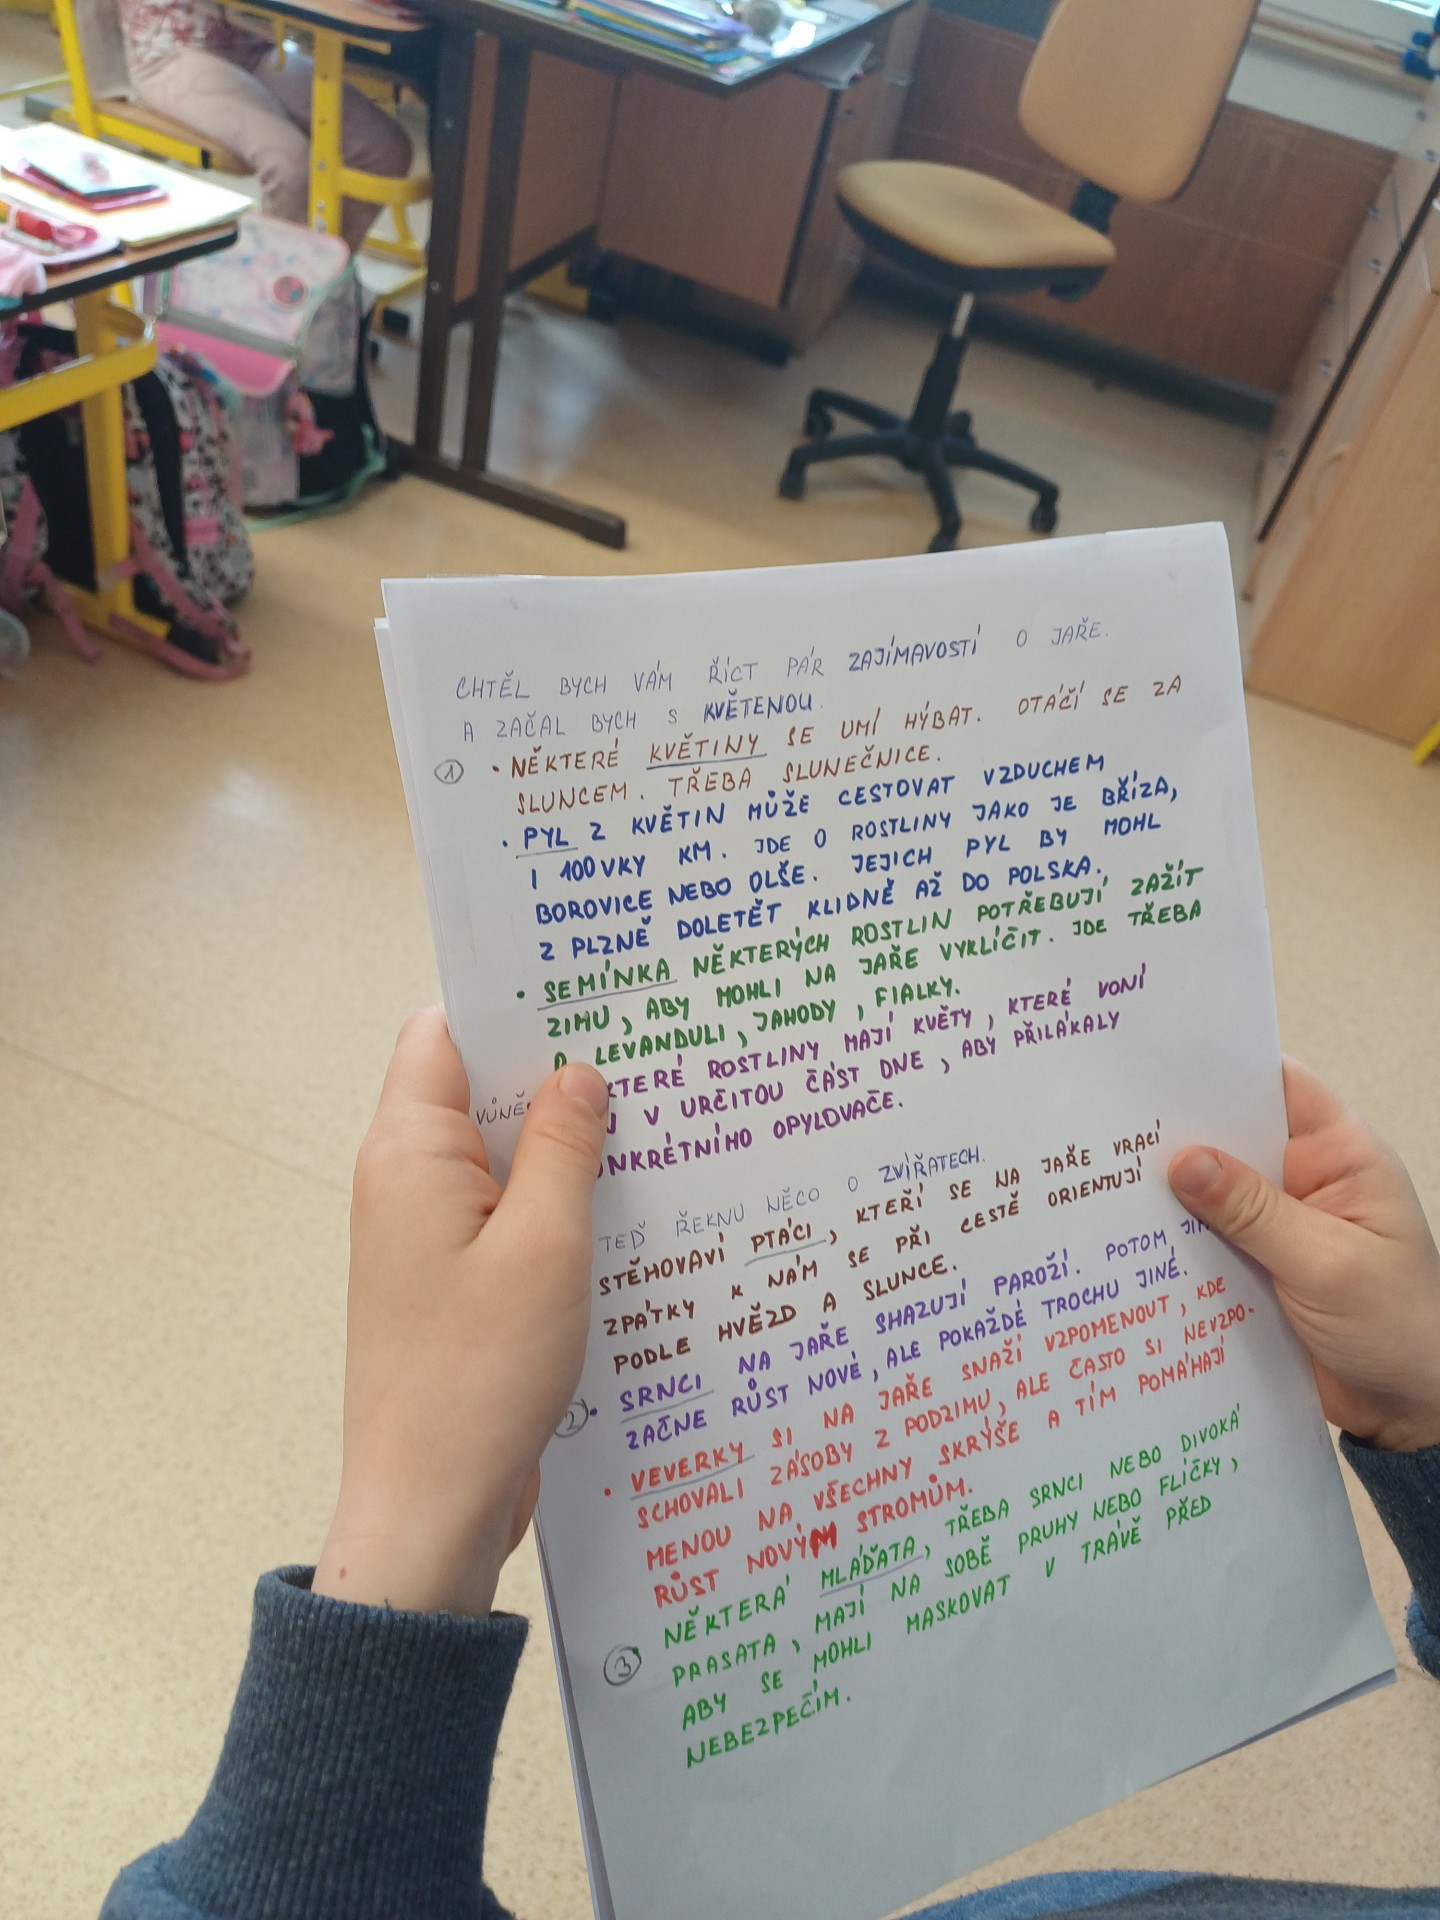 CHTĚL BYCH VÁM ŘÍCT PÁR ZAJÍMAVOSTÍ O JAŘE.
A ZAČAL BYCH S KVĚTENOU.
1 • NĚKTERÉ KVĚTINY SE UMÍ HÝBAT. OTÁČÍ SE ZA
SLUNCEM. TŘEBA SLUNEČNICE.
• PYL Z KVĚTIN MŮŽE CESTOVAT VZDUCHEM
I 100VKY KM. JDE O ROSTLINY JAKO JE BŘÍZA,
BOROVICE NEBO OLŠE. JEJICH PYL BY MOHL
Z PLZNĚ DOLETĚT KLIDNĚ AŽ DO POLSKA.
• SEMÍNKA NĚKTERÝCH ROSTLIN POTŘEBUJÍ ZAŽÍT
ZIMU, ABY MOHLI NA JAŘE VYKLÍČIT. JDE TŘEBA
O LEVANDULI, JAHODY, FIALKY.
KTERÉ ROSTLINY MAJÍ KVĚTY, KTERÉ VONÍ
VŮNĚ V URČITOU ČÁST DNE, ABY PŘILÁKALY
NKRÉTNÍHO OPYLOVAČE.
TEĎ ŘEKNU NĚCO O ZVÍŘATECH.
STĚHOVAVÍ PTÁCI, KTEŘÍ SE NA JAŘE VRACÍ
ZPÁTKY K NÁM SE PŘI CESTĚ ORIENTUJÍ
PODLE HVĚZD A SLUNCE.
2 • SRNCI NA JAŘE SHAZUJÍ PAROŽÍ. POTOM JIM
ZAČNE RŮST NOVÉ, ALE POKAŽDÉ TROCHU JINÉ.
• VEVERKY SI NA JAŘE SNAŽÍ VZPOMENOUT, KDE
SCHOVALI ZÁSOBY Z PODZIMU, ALE ČASTO SI NEVZPO-
MENOU NA VŠECHNY SKRÝŠE A TÍM POMÁHAJÍ
RŮST NOVÝM STROMŮM.
3 NĚKTERÁ MLÁĎATA, TŘEBA SRNCI NEBO DIVOKÁ
PRASATA, MAJÍ NA SOBĚ PRUHY NEBO FLÍČKY,
ABY SE MOHLI MASKOVAT V TRÁVĚ PŘED
NEBEZPEČÍM.